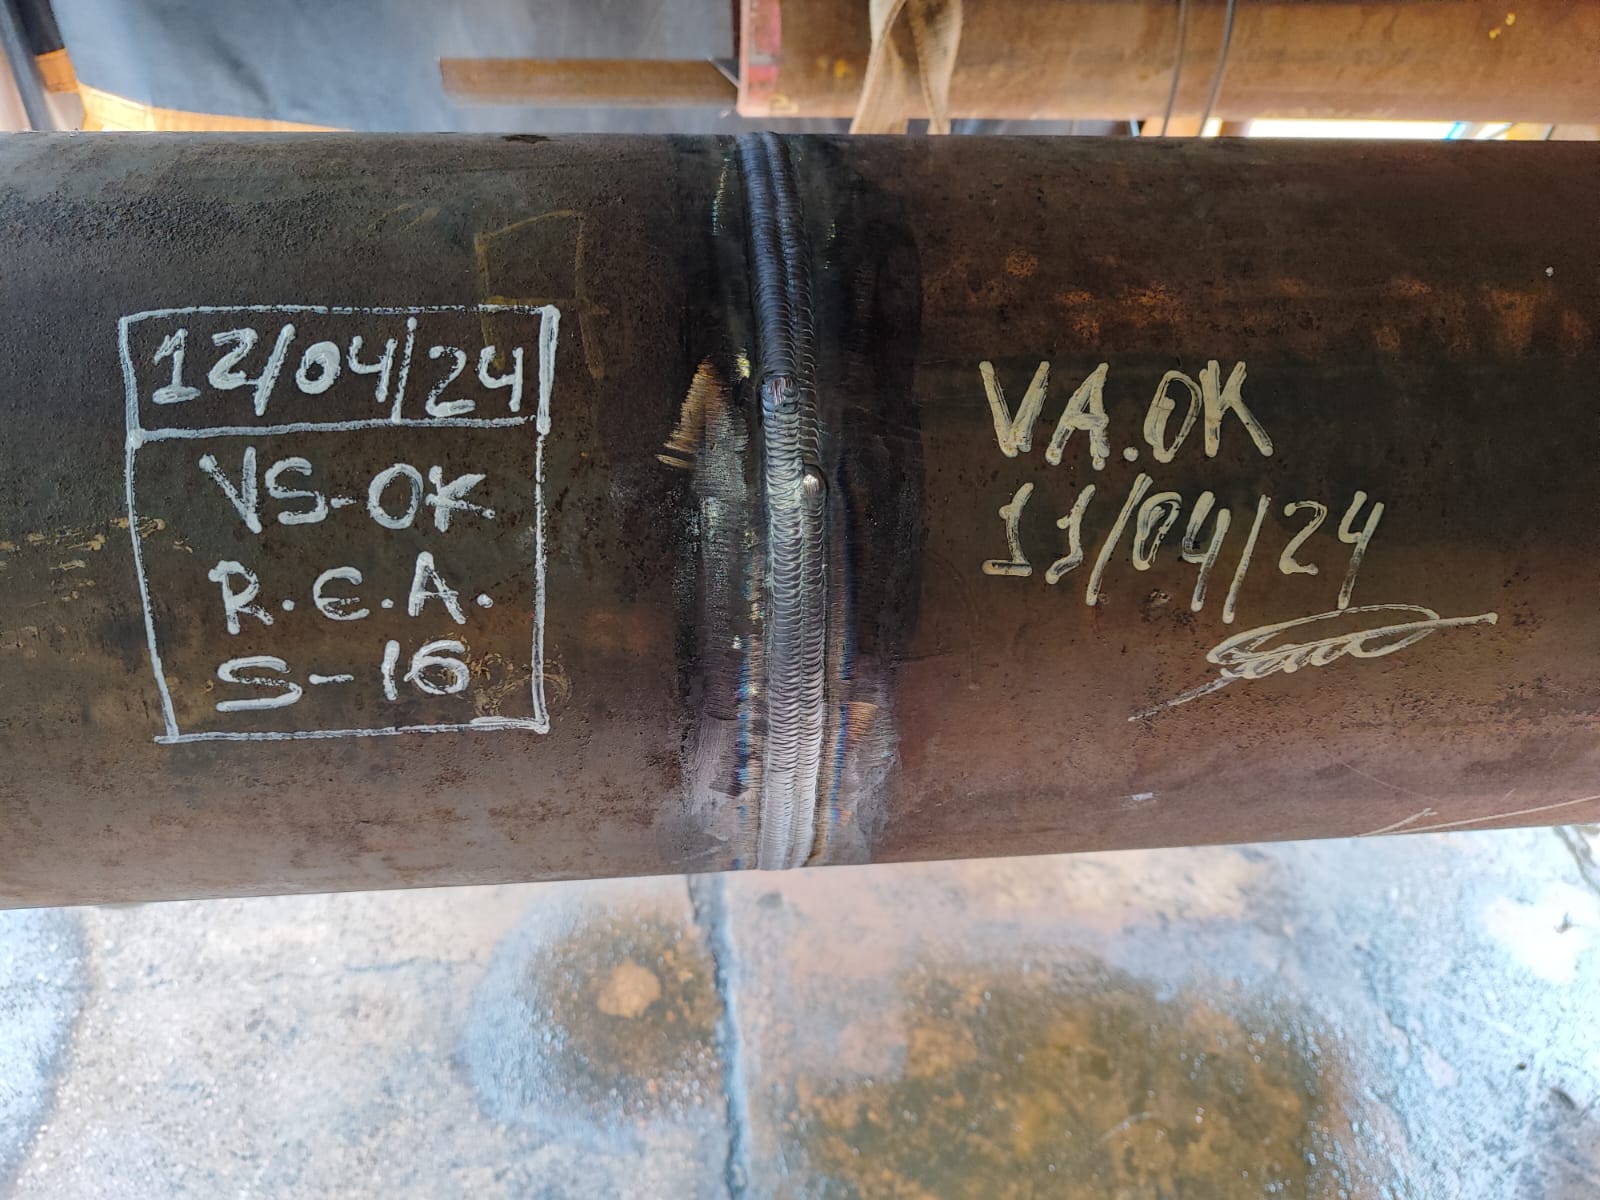 12/04/24
VS-OK
R.E.A.
S-16
VA.OK
11/04/24